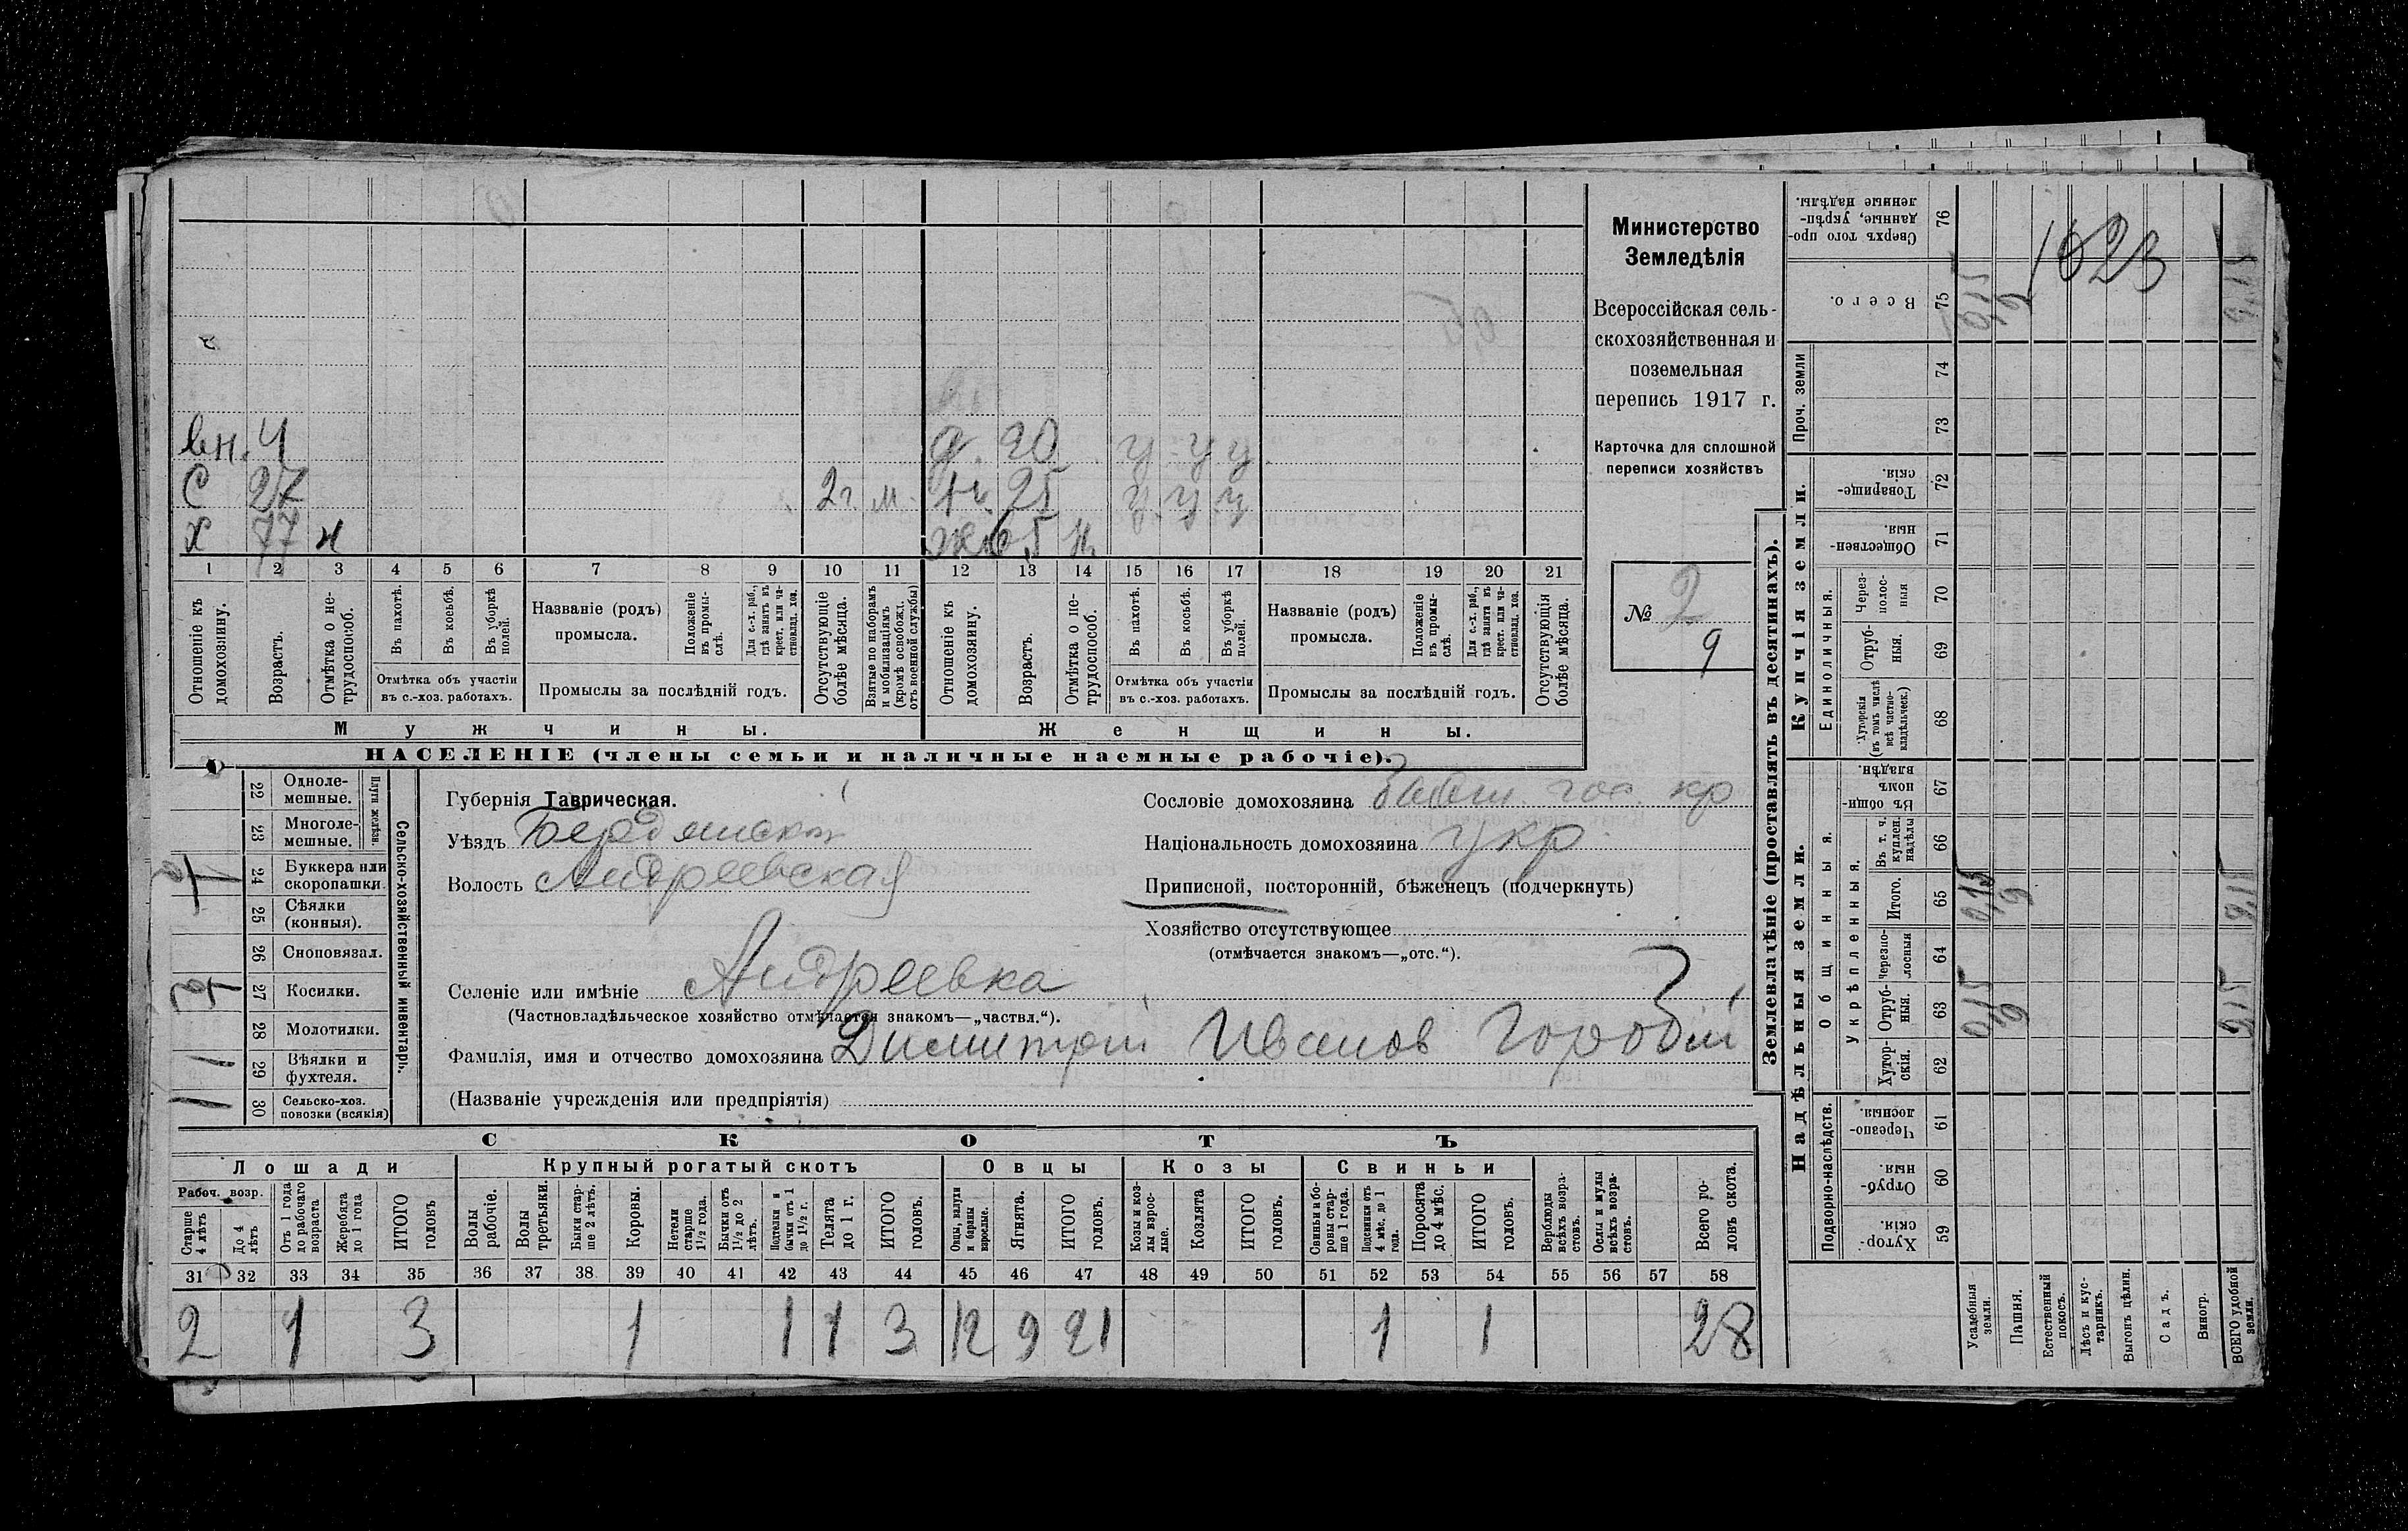 Министерство
Земледѣлія
Всероссійская сель-
скохозяйственная и
поземельная
перепись 1917 г.
Карточка для сплошной
переписи хозяйствъ
№ 2
9
1623
вн. 4
д. 20 у у у
С 27 2 г. м. 25 у. у. у
Х 77 н ж 65 н
1 2 3 4 5 6 7 8 9 10 11 12 13 14 15 16 17 18 19 20 21
Отношеніе къ домохозяину.
Возрастъ.
Отмѣтка о не-трудоспособ.
Въ пахотѣ.
Въ косьбѣ.
Въ уборкѣ полей.
Отмѣтка объ участіи въ с.-хоз. работахъ.
Названіе (родъ) промысла.
Положеніе въ промы-слѣ.
Для с.-х. раб., гдѣ занятъ въ крест. или ча-стновлад. хоз.
Промыслы за послѣдній годъ.
Отсутствующіе болѣе мѣсяца.
Взятые по наборамъ и мобилизаціямъ (кромѣ освобожд. отъ военной службы)
Отношеніе къ домохозяину.
Возрастъ.
Отмѣтка о не-трудоспособ.
Въ пахотѣ.
Въ косьбѣ.
Въ уборкѣ полей.
Отмѣтка объ участіи въ с.-хоз. работахъ.
Названіе (родъ) промысла.
Положеніе въ промы-слѣ.
Для с.-х. раб., гдѣ занята въ крест. или ча-стновлад. хоз.
Промыслы за послѣдній годъ.
Отсутствующія болѣе мѣсяца.
Мужчины. Женщины.
НАСЕЛЕНІЕ (члены семьи и наличные наемные рабочіе).
Сельско-хозяйственный инвентарь.
Плуги желѣзн.
22 Одноле-мешные.
23 Многоле-мешные.
24 Буккера или скоропашки.
25 Сѣялки (конныя).
26 Сноповязал.
27 Косилки.
28 Молотилки.
1 29 Вѣялки и фухтеля.
1 30 Сельско-хоз. повозки (всякія)
Губернія Таврическая.
Уѣздъ Бердянскій
Волость Андреевская
Селеніе или имѣніе Андреевка
(Частновладѣльческое хозяйство отмѣчается знакомъ—„частвл.“).
Фамилія, имя и отчество домохозяина Димитрій Иванов Горобій
(Названіе учрежденія или предпріятія)
Сословіе домохозяина бывш. гос. кр
Національность домохозяина укр.
Приписной, посторонній, бѣженецъ (подчеркнуть)
Хозяйство отсутствующее
(отмѣчается знакомъ—„отс.“).
СКОТЪ
Лошади Крупный рогатый скотъ Овцы Козы Свиньи
Рабоч. возр.
Старше 4 лѣтъ
До 4 лѣтъ
Отъ 1 года до рабочаго возраста
Жеребята до 1 года
ИТОГО головъ
Волы рабочіе.
Волы третьяки.
Быки стар-ше 2 лѣтъ.
Коровы.
Нетели старше 1½ года.
Бычки отъ 1½ до 2 лѣтъ.
Подтелки и бычки отъ 1 до 1½ г.
Телята до 1 г.
ИТОГО головъ.
Овцы, валухи и бараны взрослые.
Ягнята.
ИТОГО головъ.
Козы и коз-лы взрос-лые.
Козлята
ИТОГО головъ.
Свиньи и бо-ровы стар-ше 1 года.
Подсвинки отъ 4 мѣс. до 1 года.
Поросята до 4 мѣс.
ИТОГО головъ.
Верблюды всѣхъ возра-стовъ.
Ослы и мулы всѣхъ возра-стовъ.
Всего го-ловъ скота.
31 32 33 34 35 36 37 38 39 40 41 42 43 44 45 46 47 48 49 50 51 52 53 54 55 56 57 58
2 1 3 1 1 1 3 12 9 21 1 1 28
Землевладѣніе (проставлять въ десятинахъ).
Надѣльныя земли.
Купчія земли.
Проч. земли
Подворно-наслѣдств.
Общинныя.
Укрѣпленныя.
Единоличныя.
Сверхъ того про-данные, укрѣп-ленные надѣлы. 76
Всего. 75 0,15 9 9,15
74
73
Товарище-скія. 72
Обществен-ныя. 71
Через-полос-ныя 70
Отруб-ныя. 69
Хуторскія (въ томъ числѣ всѣ частно-владѣльческ.) 68
Въ общин-номъ владѣн. 67
Въ т. ч. куплен. надѣлы 66
Итого. 65 0,15 9 9,15
Черезпо-лосныя 64
Отруб-ныя. 63 0,15 9 9,15
Хутор-скія. 62
Черезпо-лосныя. 61
Отруб-ныя. 60
Хутор-скія. 59
Усадебныя земли.
Пашня.
Естественный покосъ.
Лѣсъ и кус-тарникъ.
Выгонъ цѣлин.
Садъ.
Виногр.
ВСЕГО удобной земли.